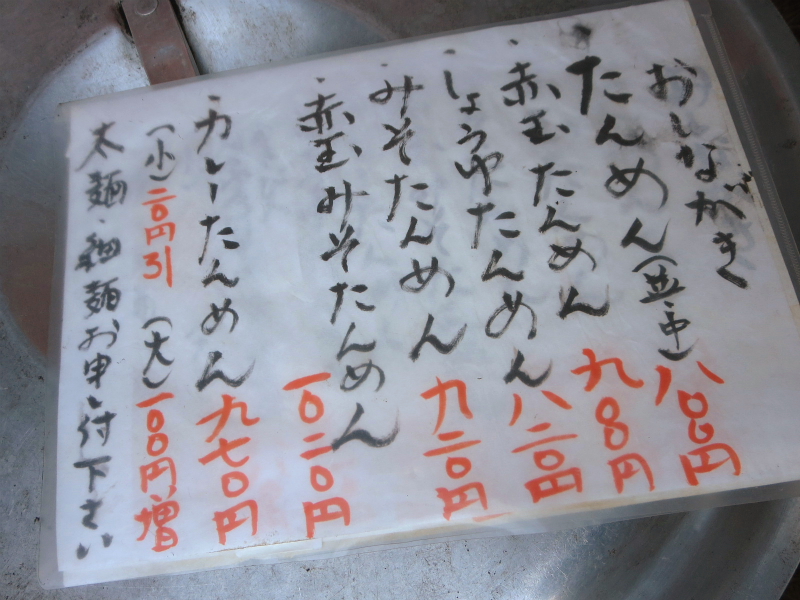 おしながき
たんめん(並・中)八〇〇円
・赤玉たんめん九〇〇円
・しょうゆたんめん八二〇円
・みそたんめん九二〇円
・赤玉みそたんめん一〇二〇円
・カレーたんめん九七〇円
(小)二〇円引 (大)一〇〇円増
太麺・細麺お申し付下さい